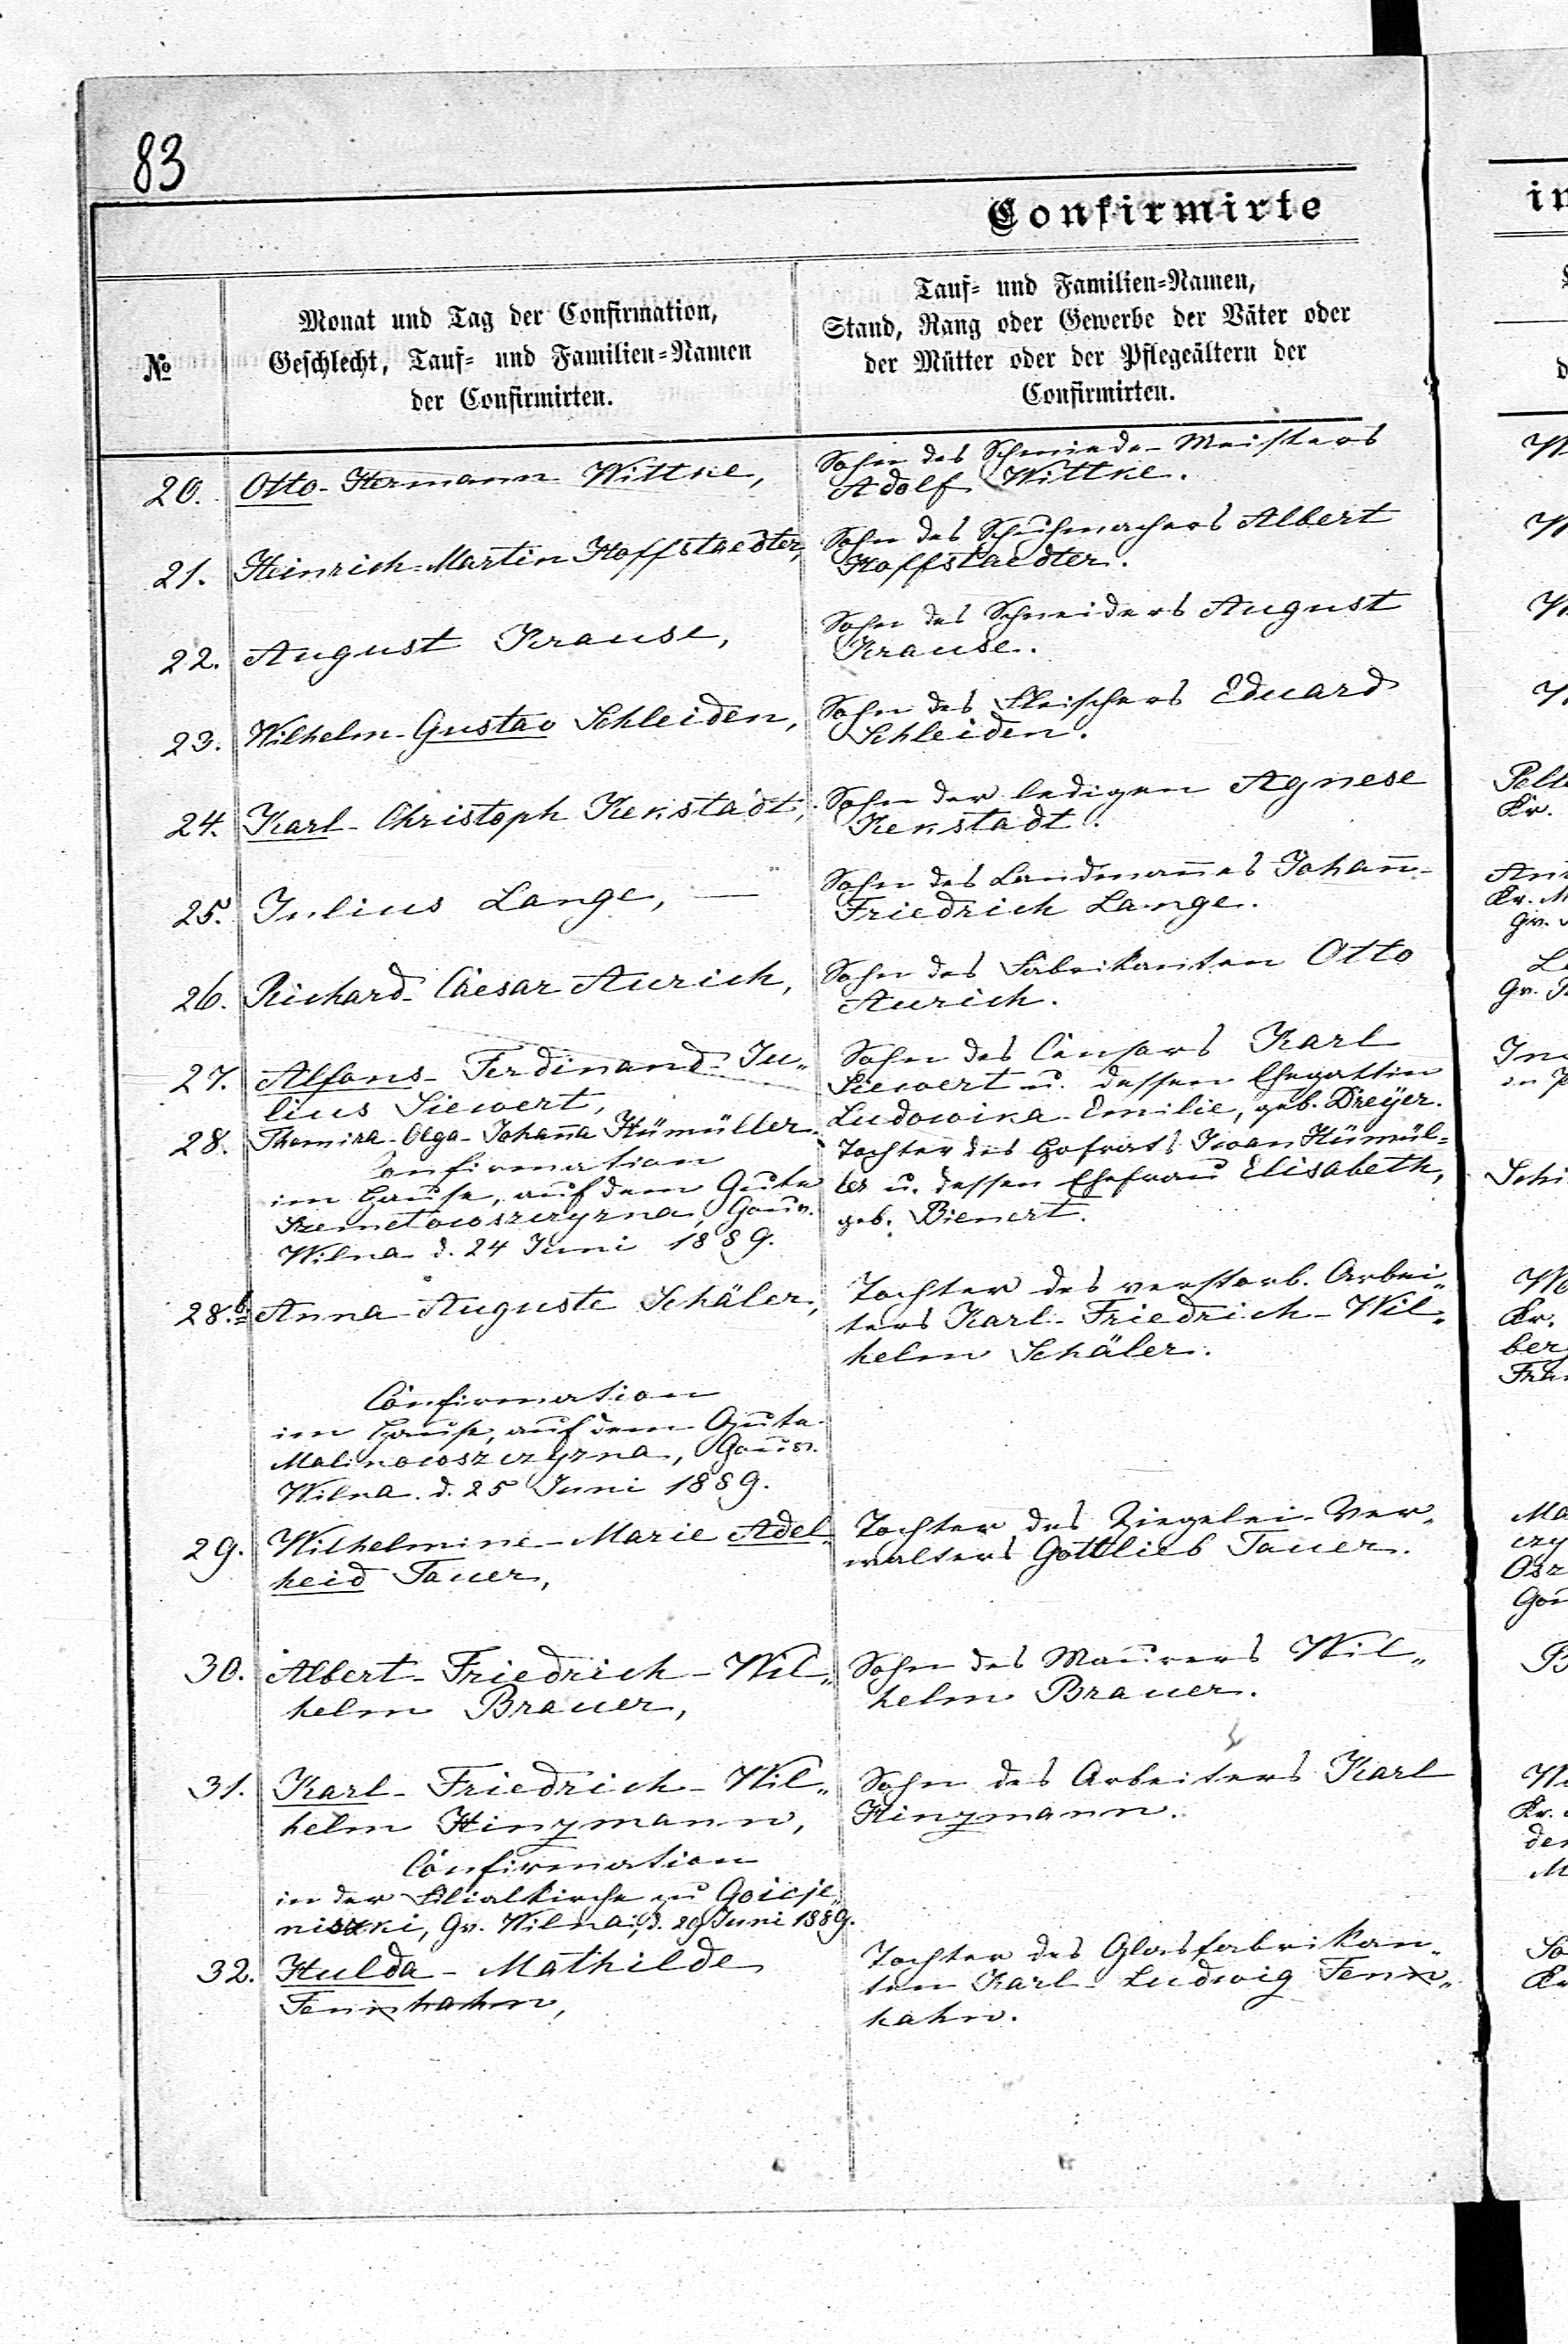 83
Confirmirte
№
Monat und Tag der Confirmation,
Geschlecht, Tauf- und Familien-Namen
der Confirmirten.
Tauf- und Familien-Namen,
Stand, Rang oder Gewerbe der Väter oder
der Mütter oder der Pflegeältern der
Confirmirten.
20. Otto-Hermann Wittke,
Sohn des Schmiede-Meisters
Adolf Wittke.
21. Heinrich-Martin Hoffstaedter,
Sohn des Schuhmachers Albert
Hoffstaedter.
22. August Krause,
Sohn des Schneiders August
Krause.
23. Wilhelm-Gustav Schleiden,
Sohn des Fleischers Eduard
Schleiden.
24. Karl-Christoph Kekstadt,
Sohn der ledigen Agnese
Kekstadt.
25. Julius Lange,
Sohn des Landman̄es Johan̄-
Friedrich Lange.
26. Richard-Caesar Aurich,
Sohn des Fabrikanten Otto
Aurich.
27. Alfons-Ferdinand-Ju„
lius Siewert,
Sohn des Censors Karl
Siewert u. dessen Ehegattin
Ludowika-Emilie, geb. Dreÿer.
28. Thamira-Olga-Johan̄a Hümüller.
Confirmation
im Hause, auf dem Gute
Szemetowszczyzna, Gouv.
Wilna d. 24 Juni 1889.
Tochter des Hofrats Iwan Hümül=
ler u. dessen Ehefrau Elisabeth,
geb. Bienert.
28.b Anna-Auguste Schäler,
Tochter des verstorb. Arbei„
ters Karl-Friedrich-Wil„
helm Schäler.
Confirmation
im Hause, auf dem Gute
Malinowszczyzna, Gouv.
Wilna. d. 25 Juni 1889.
29. Wilhelmine-Marie Adel„
heid Tauer,
Tochter des Ziegelei-Ver„
walters Gottlieb Tauer.
30. Albert-Friedrich-Wil„
helm Brauer,
Sohn des Maurers Wil„
helm Brauer.
31. Karl-Friedrich-Wil„
helm Hinzmann,
Sohn des Arbeiters Karl
Hinzmann.
Confirmation
in der Filialkirche zu Goicje„
niszki, Gv. Wilna, d. 29 Juni 1889.
32. Hulda-Mathilde
Tochter des Glasfabrikan„
ten Karl-Ludwig
hahn.